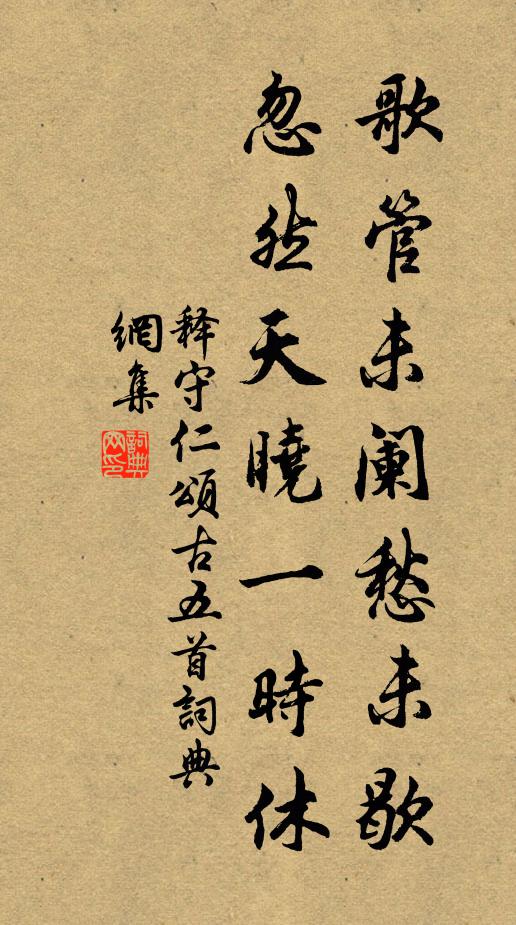 歌管未阑愁未歇
忽然天曉一時休
释守仁頌古五首詞典
網集
詞典
网印